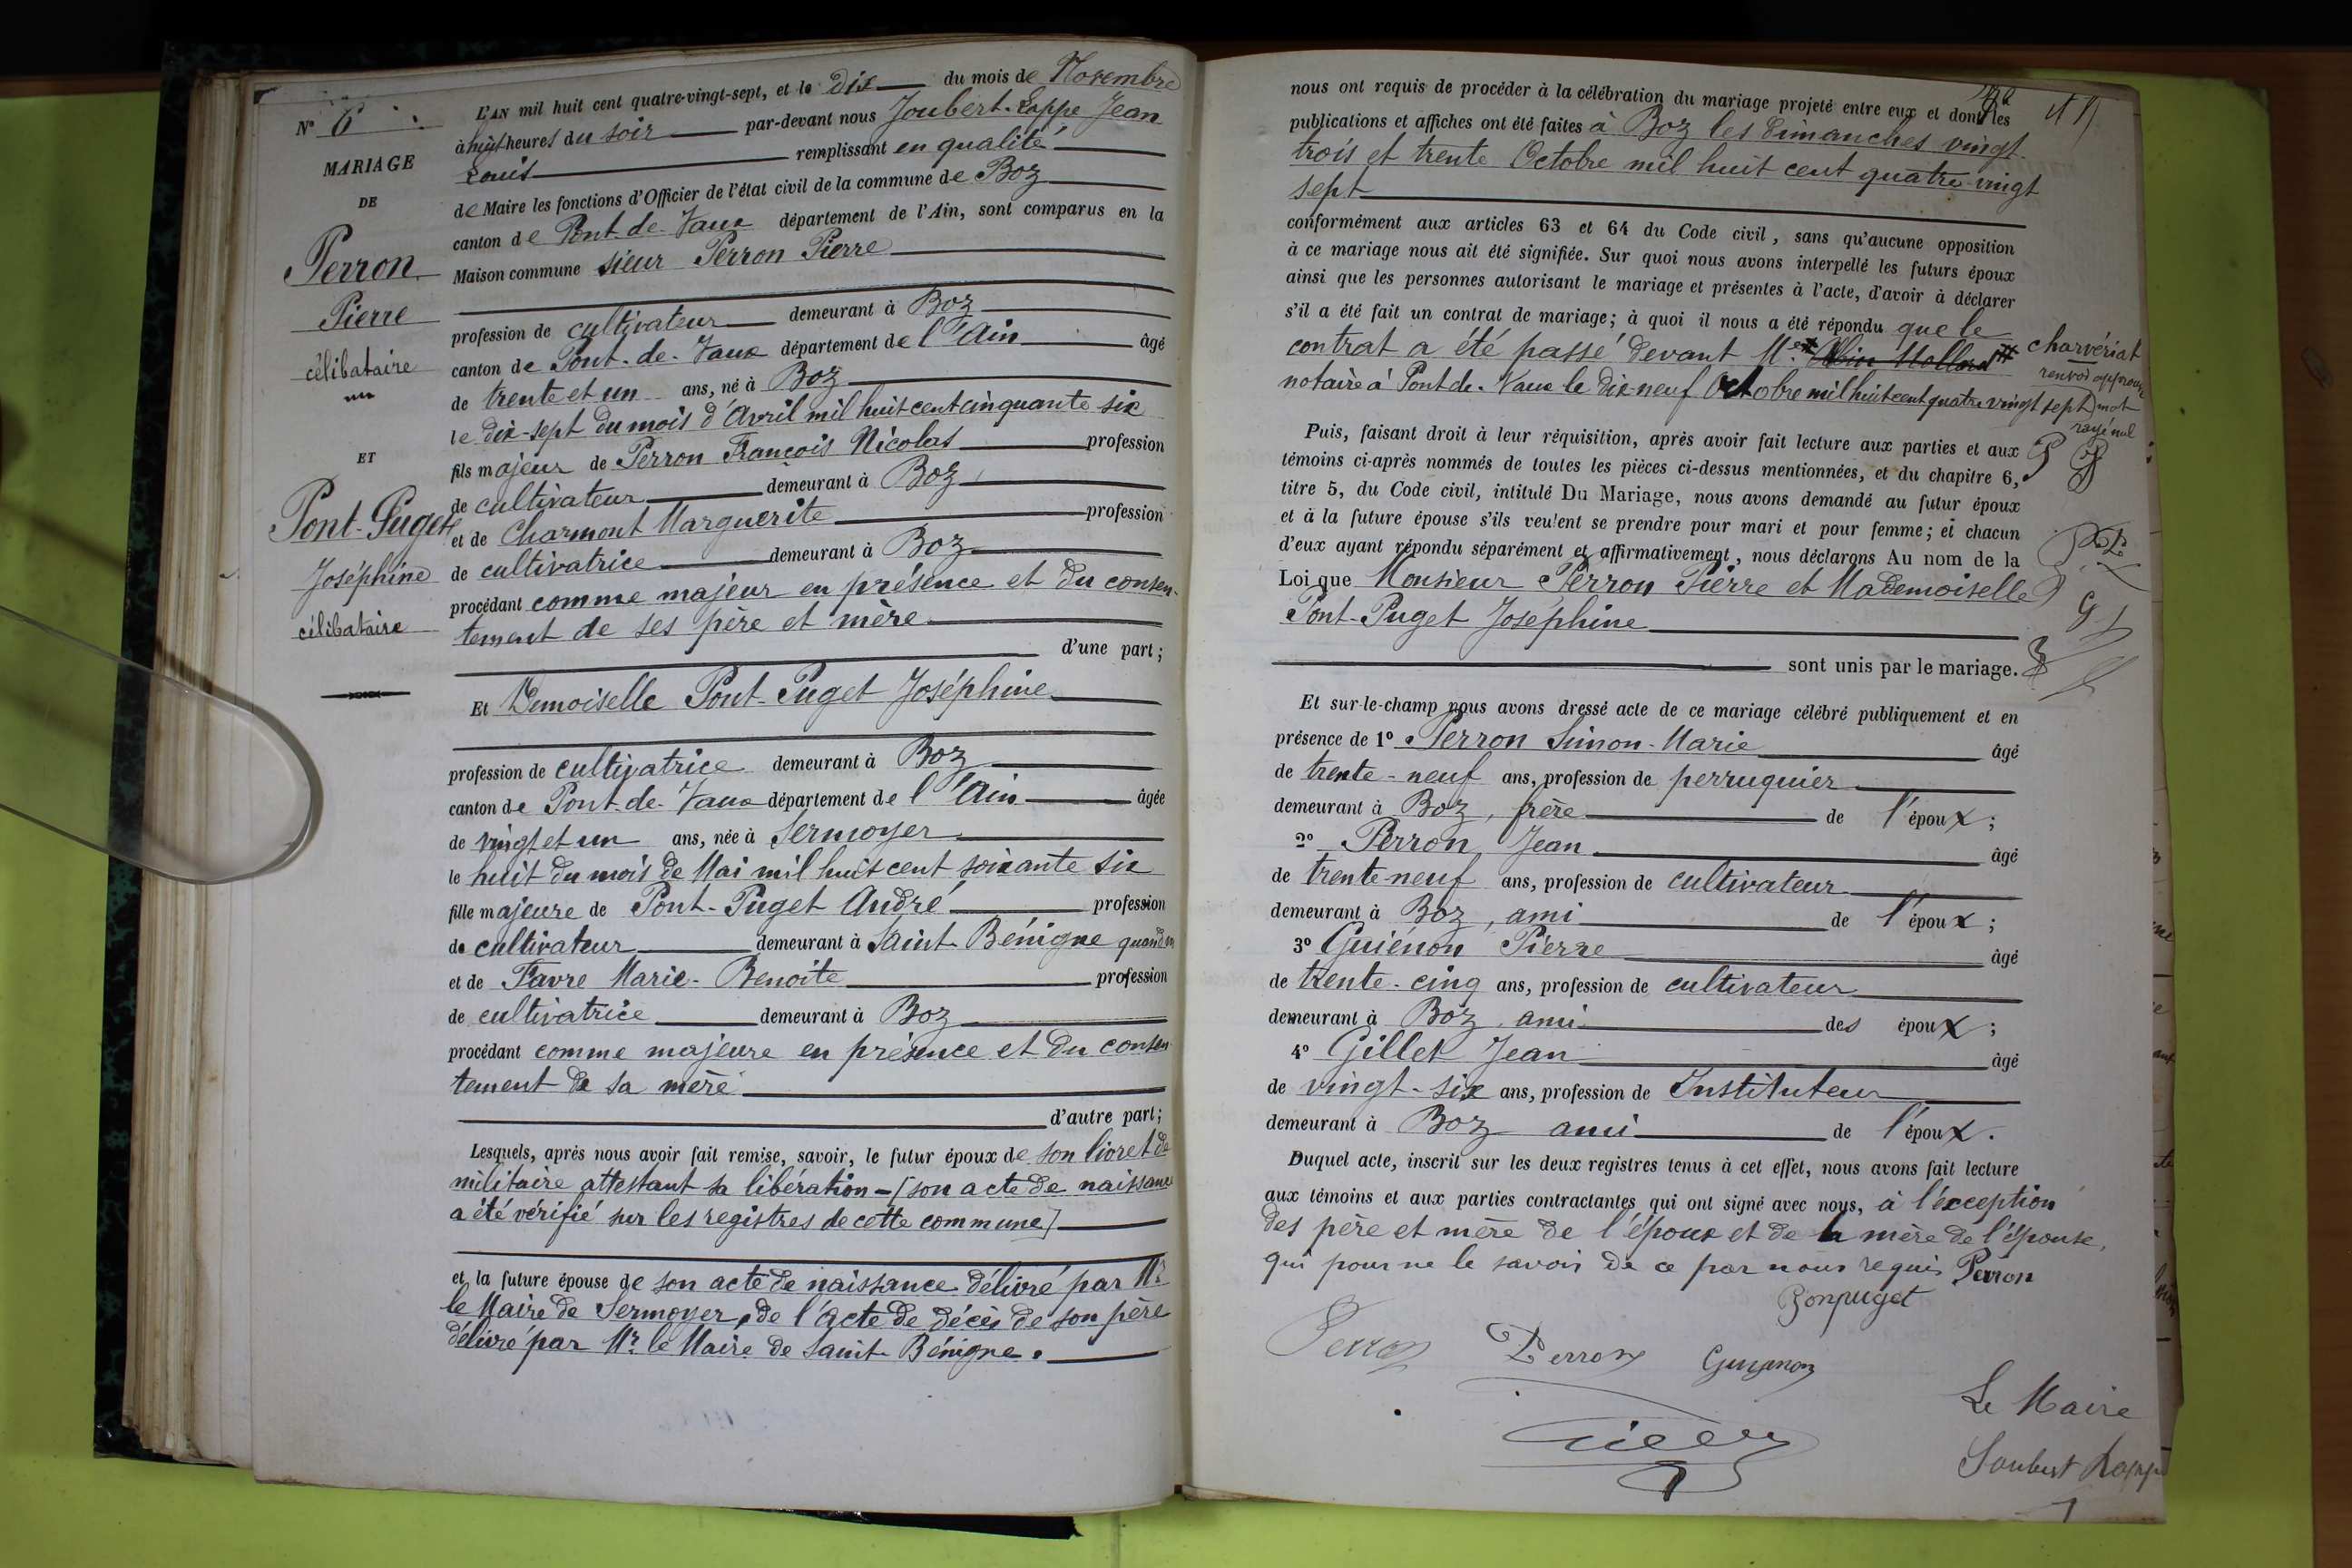 N° 6
MARIAGE
DE
Perron
Pierre
célibataire
ET
Pont-Puget
Joséphine
célibataire
L'AN mil huit cent quatre-vingt-sept, et le Dix du mois de Novembre
à huit heures du soir par-devant nous Joubert-Lappe Jean
Louis remplissant en qualité
de Maire les fonctions d'Officier de l'état civil de la commune de Boz
canton de Pont-de-Vaux département de l'Ain, sont comparus en la
Maison commune sieur Perron Pierre
profession de cultivateur demeurant à Boz
canton de Pont-de-Vaux département de l'Ain âgé
de trente et un ans, né à Boz
le dix-sept du mois d'Avril mil huit cent cinquante six
fils majeur de Perron François Nicolas profession
de cultivateur demeurant à Boz
et de Charmont Marguerite profession
de cultivatrice demeurant à Boz
procédant comme majeur en présence et du consen-
tement de ses père et mère
d'une part;
Et Demoiselle Pont-Puget Joséphine
profession de cultivatrice demeurant à Boz
canton de Pont-de-Vaux département de l'Ain âgée
de vingt et un ans, née à Sermoyer
le huit du mois de Mai mil huit cent soixante six
fille majeure de Pont-Puget André profession
de cultivateur demeurant à Saint-Bénigne quand
et de Favre Marie-Benoite profession
de cultivatrice demeurant à Boz
procédant comme majeure en présence et du consen
tement de sa mère
d'autre part;
Lesquels, après nous avoir fait remise, savoir, le futur époux de son livret de
militaire attestant sa libération - (son acte de naissance
a été vérifié sur les registres de cette commune)
et la future épouse de son acte de naissance délivré par Mr
le Maire de Sermoyer, de l'acte de décès de son père
délivré par Mr. le Maire de Saint-Bénigne.
nous ont requis de procéder à la célébration du mariage projeté entre eux et dont les
publications et affiches ont été faites à Boz les Dimanches vingt-
trois et trente Octobre mil huit cent quatre-vingt
sept
conformément aux articles 63 et 64 du Code civil, sans qu'aucune opposition
à ce mariage nous ait été signifiée. Sur quoi nous avons interpellé les futurs époux
ainsi que les personnes autorisant le mariage et présentes à l'acte, d'avoir à déclarer
s'il a été fait un contrat de mariage; à quoi il nous a été répondu que le
contrat a été passé devant Me
notaire à Pont-de-Vaux le dix-neuf Octobre mil huit cent quatre vingt sept
charvériat
renvoi approuvé
mot
rayé nul
Puis, faisant droit à leur réquisition, après avoir fait lecture aux parties et aux
témoins ci-après nommés de toutes les pièces ci-dessus mentionnées, et du chapitre 6,
titre 5, du Code civil, intitulé Du Mariage, nous avons demandé au futur époux
et à la future épouse s'ils veulent se prendre pour mari et pour femme; et chacun
d'eux ayant répondu séparément et affirmativement, nous déclarons Au nom de la
Loi que Monsieur Perron Pierre et Mademoiselle
Pont-Puget Joséphine
sont unis par le mariage.
Et sur-le-champ nous avons dressé acte de ce mariage célébré publiquement et en
présence de 1° Perron Simon-Marie âgé
de trente-neuf ans, profession de perruquier
demeurant à Boz, frère de l'époux;
2° Perron Jean âgé
de trente-neuf ans, profession de cultivateur
demeurant à Boz, ami de l'époux;
3° Guiénon Pierre âgé
de trente-cinq ans, profession de cultivateur
demeurant à Boz, ami des époux;
4° Gillet Jean âgé
de vingt-six ans, profession de Instituteur
demeurant à Boz ami de l'époux.
Duquel acte, inscrit sur les deux registres tenus à cet effet, nous avons fait lecture
aux témoins et aux parties contractantes qui ont signé avec nous, à l'exception
des père et mère de l'époux et de la mère de l'épouse,
qui pour ne le savoir de ce par nous requis Perron
Ponpuget
Perron Perron Guyenon
Le Maire
Joubert Lappe